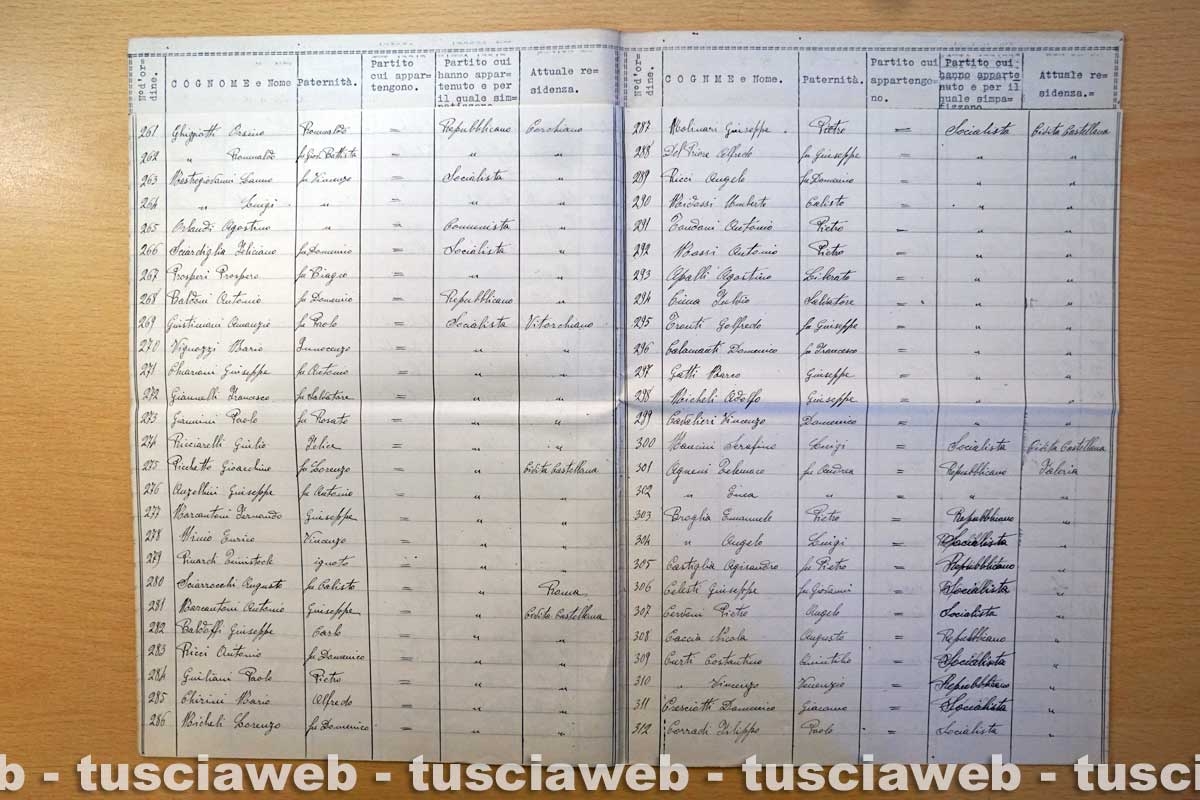 N°d'or=dine. COGNOME e Nome Paternità. Partito cui appar=tengono. Partito cui hanno appar=tenuto e per il quale sim= Attuale re=sidenza.
261 Ghizzotti Orsino Romualdo = Repubblicano Corchiano
262 " Romualdo fu Giov. Battista = " "
263 Mastrogiovanni fu Vincenzo = Socialista "
264 " Luigi " = " "
265 Orlandi Agostino " = Comunista "
266 Sciardiglia Feliciano fu Domenico = Socialista "
267 Prosperi Prospero fu Biagio = " "
268 Baldini Antonio fu Domenico = Repubblicano "
269 Giustiniani Amanzio fu Paolo = Socialista Vitorchiano
270 Vignozzi Mario Innocenzo = " "
271 Chiariani Giuseppe fu Antonio = " "
272 Giannelli Francesco fu Salvatore = " "
273 Giannini Paolo fu Rosato = " "
274 Ricciarelli Giulio Felice = " "
275 Picchetto Gioacchino fu Lorenzo = " Civita Castellana
276 Anzellini Giuseppe fu Antonio = " "
277 Marcantoni Fernando Giuseppe = " "
278 Mimo Enrico Vincenzo = " "
279 Pinardi ignoto = " "
280 Sciarrocchi Augusto fu Calisto = " Roma
281 Marcantoni Antonio Giuseppe = " Civita Castellana
282 Baldoffi Giuseppe Carlo = " "
283 Ricci Antonio fu Domenico = " "
284 Giuliani Paolo Pietro = " "
285 Chirini Mario Alfredo = " "
286 Micheli Lorenzo fu Domenico = " "
N°d'or=dine. COGNME e Nome. Paternità. Partito cui appartengo=no. Partito cui hanno apparte nuto e per il quale simpa= fizzano Attuale re=sidenza.=
287 Molinari Giuseppe Pietro = Socialista Civita Castellana
288 Del Priore Alfredo fu Giuseppe = " "
289 Ricci Angelo fu Domenico = " "
290 Umberto Calisto = " "
291 Tondani Antonio Pietro = " "
292 Massi Antonio Pietro = " "
293 Apolli Agostino Liberato = " "
294 Cima Fulvio Salvatore = " "
295 Fronti Golfredo fu Giuseppe = " "
296 Calamanti Domenico fu Francesco = " "
297 Gatti Marco Giuseppe = " "
298 Micheli Adolfo Giuseppe = " "
299 Cavalieri Vincenzo Domenico = " "
300 Mancini Serafino Luigi = Socialista Civita Castellana
301 Agneni Telemaco fu Andrea = Repubblicano Valeria
302 " Enea " = " "
303 Broglia Emanuele Pietro = Repubblicano "
304 " Angelo Luigi = Socialista "
305 Castiglia Agisandro fu Pietro = Repubblicano "
306 Celesti Giuseppe fu Giovanni = Socialista "
307 Cervini Pietro Angelo = Socialista "
308 Caccia Nicola Augusto = Repubblicano "
309 Curti Costantino Quintilio = Socialista "
310 " Vincenzo Venenzio = Repubblicano "
311 Cresciotti Domenico Giacomo = Socialista "
312 Corradi Filippo Paolo = Socialista "
b - tusciaweb - tusciaweb - tusciaweb - tusci